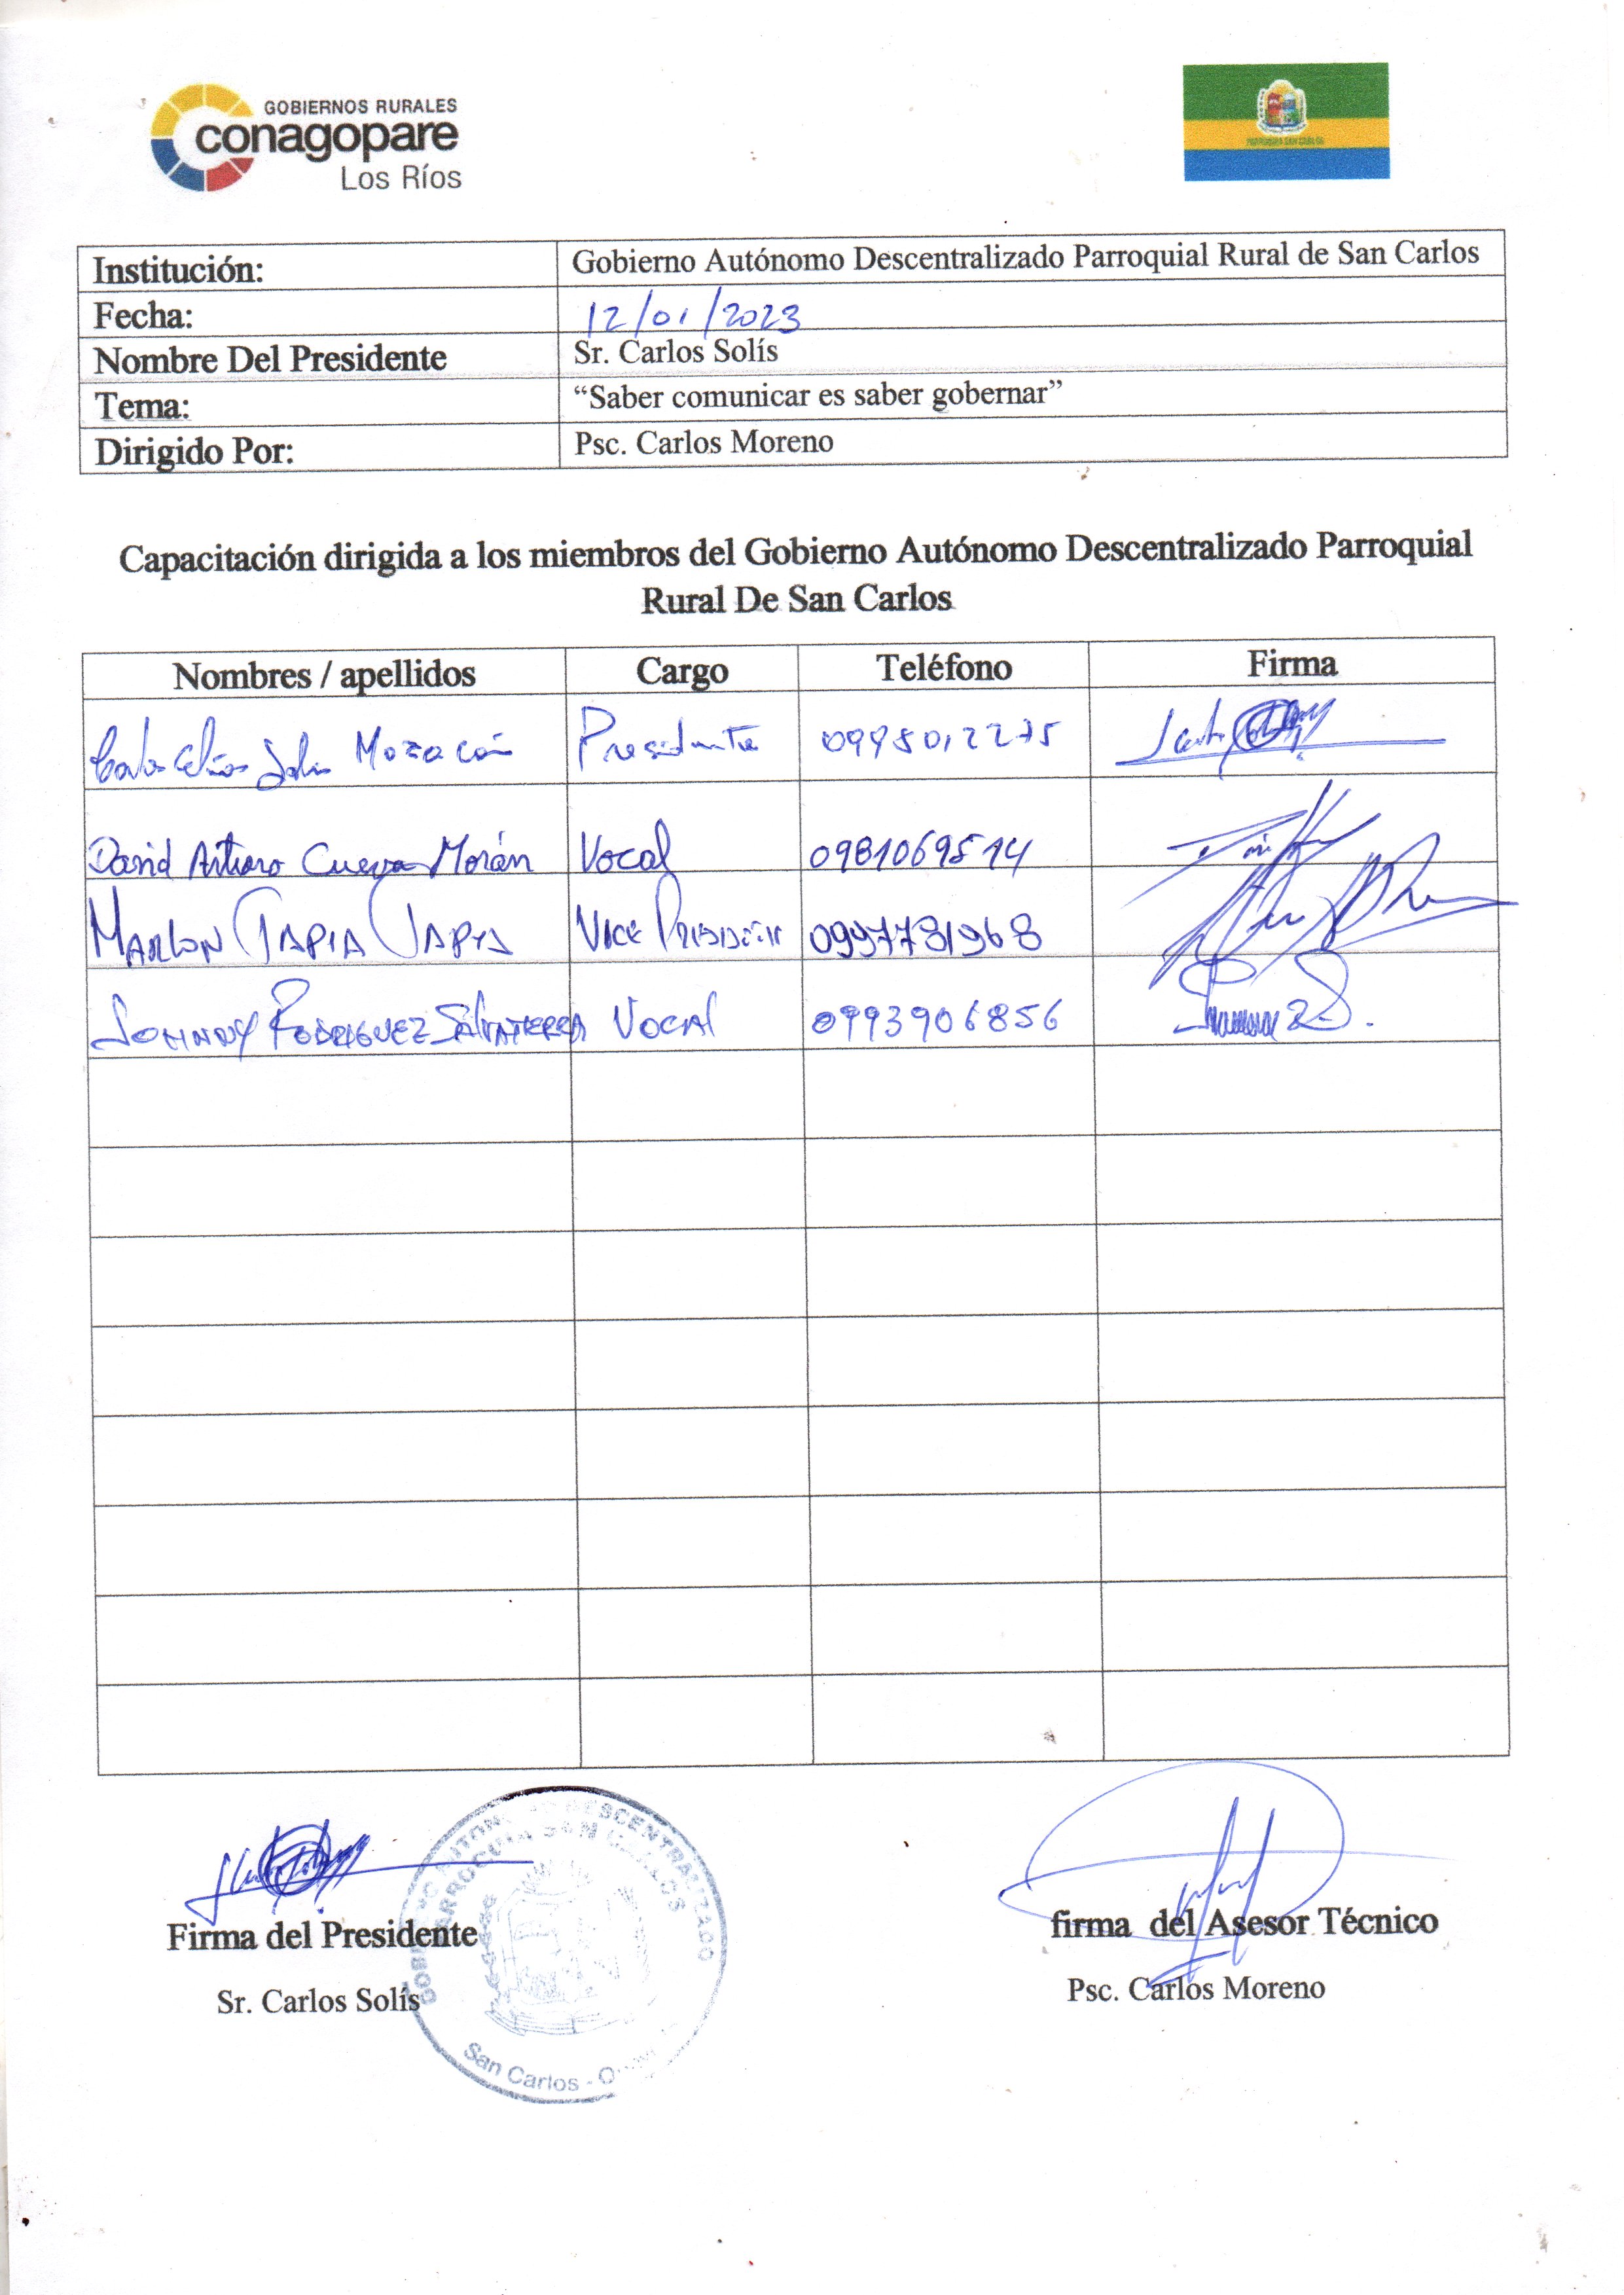 GOBIERNOS RURALES
conagopare
Los Ríos
PARROQUIA SAN CARLOS
Institución: Gobierno Autónomo Descentralizado Parroquial Rural de San Carlos
Fecha: 12/01/2023
Nombre Del Presidente Sr. Carlos Solís
Tema: “Saber comunicar es saber gobernar”
Dirigido Por: Psc. Carlos Moreno
Capacitación dirigida a los miembros del Gobierno Autónomo Descentralizado Parroquial
Rural De San Carlos
Nombres / apellidos Cargo Teléfono Firma
Presidente
David Arturo Cueva Morán Vocal 0981069514
MARLON TAPIA TAPIA VICE PRESIDENTE 0997781968
JOHNNY RODRIGUEZ SALVATIERRA VOCAL 0993906856
Firma del Presidente
Sr. Carlos Solís
DESCENTRALIZADO
SAN CARLOS
San Carlos -
firma del Asesor Técnico
Psc. Carlos Moreno